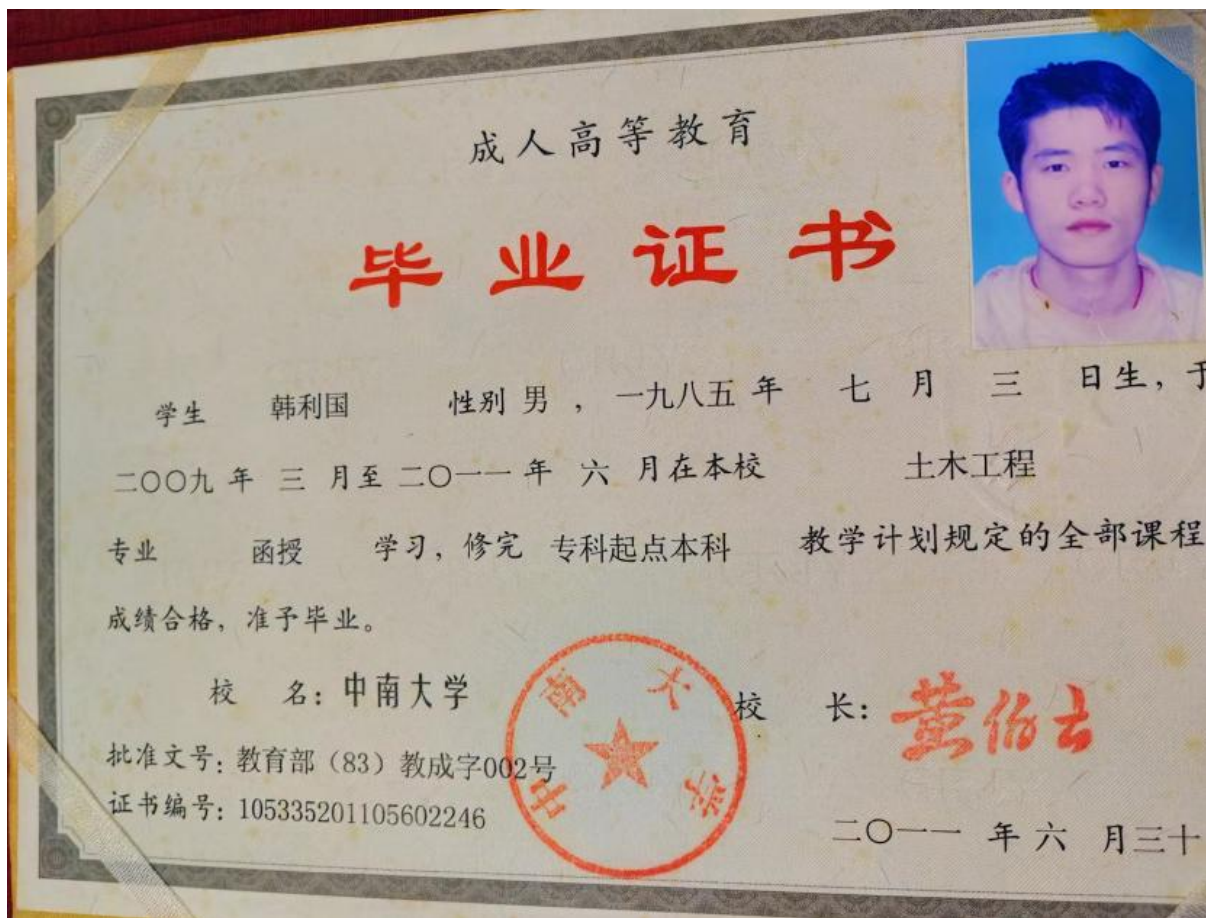 成人高等教育
毕业证书
学生 韩利国 性别 男 , 一九八五 年 七 月 三 日生, 于
二〇〇九 年 三 月至 二〇一一 年 六 月在本校 土木工程
专业 函授 学习, 修完 专科起点本科 教学计划规定的全部课程
成绩合格, 准予毕业。
校 名: 中南大学 校 长: 黄伯云
中南大学
批准文号: 教育部(83)教成字002号
证书编号: 105335201105602246
二〇一一 年 六 月三十